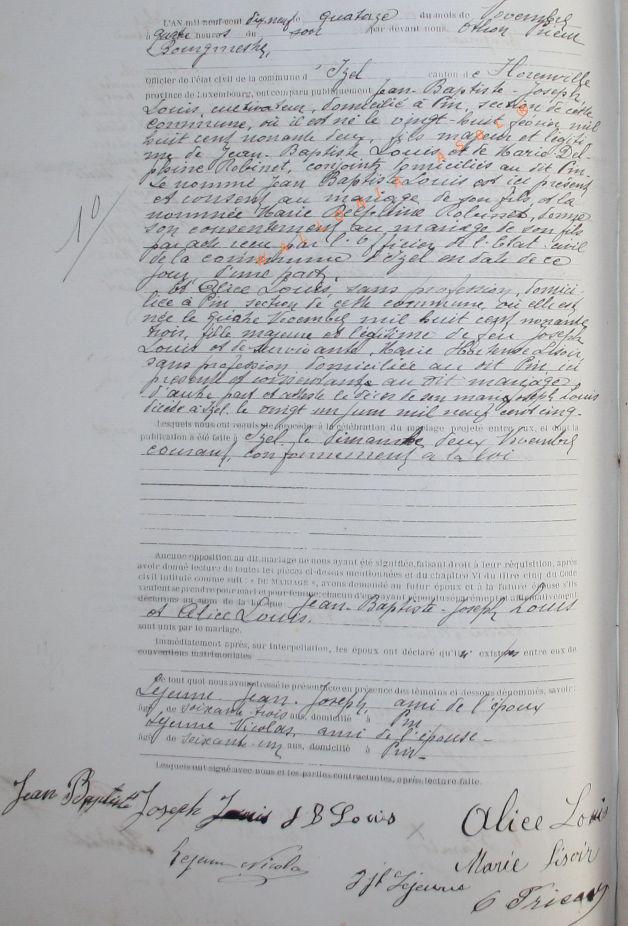 L'AN mil neuf cent dix neuf le quatorze du mois de Novembre
à heures du soir par devant nous, Othon
Bourgmestre,
Officier de l'état civil de la commune d'Izel canton de Florenville
province de Luxembourg, ont comparu publiquement Jean-Baptiste-Joseph
Louis, cultivateur, domicilié à Pin, section de cette
commune, où il est né le vingt-huit février mil
huit cent nonante deux, fils majeur et légiti
me de Jean-Baptiste Louis et de Marie Del
phine Robinet, conjoints domiciliés au dit Pin.
Le nommé Jean Baptiste Louis est ici présent
et consent au mariage de son fils, et la
nommée Marie Delphine Robinet, donne
son consentement au mariage de son fils
par acte reçu par l'Officier de l'Etat civil
de la commune d'Izel en date de ce
jour, d'une part.
10
Et Alice Louis, sans profession, domici
liée à Pin section de cette commune, où elle est
née le quinze Décembre mil huit cent nonante
trois, fille majeure et légitime de feu Joseph
Louis et de survivante Marie Hortense Lisoir,
sans profession, domiciliée au dit Pin, ici
présente et consentante au dit mariage
d'autre part et atteste le décès de son mari Joseph Louis
décédé à Izel, le vingt un juin mil neuf cent cinq.
Lesquels nous ont requis de procéder à la célébration du mariage projeté entre eux, et dont la
publication a été faite à Izel, le dimanche deux Novembre
courant, conformément à la loi
Aucune opposition au dit mariage ne nous ayant été signifiée, faisant droit à leur réquisition, après
avoir donné lecture de toutes les pièces ci-dessus mentionnées et du chapitre VI du titre cinq du Code
civil intitulé comme suit : « DU MARIAGE », avons demandé au futur époux et à la future épouse s'ils
veulent se prendre pour mari et pour femme; chacun d'eux ayant répondu séparément et affirmativement
déclarons au nom de la loi que Jean-Baptiste-Joseph Louis
et Alice Louis.
sont unis par le mariage.
Immédiatement après, sur interpellation, les époux ont déclaré qu'il n'existe pas entre eux de
conventions matrimoniales
De tout quoi nous avons dressé le présent acte en présence des témoins ci dessous dénommés, savoir:
Lejeune Jean-Joseph, ami de l'époux
âgé de soixante trois ans, domicilié à Pin
Lejeune Nicolas, ami de l'épouse
âgé de soixante-un ans, domicilié à Pin
Lesquels ont signé avec nous et les parties contractantes, après lecture faite.
Jean Baptiste Joseph Louis J B Louis Alice Louis
Lejeune Nicola Marie Lisoir
J Jh Lejeune